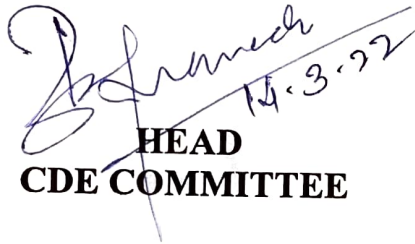 14.3.22
HEAD
CDE COMMITTEE